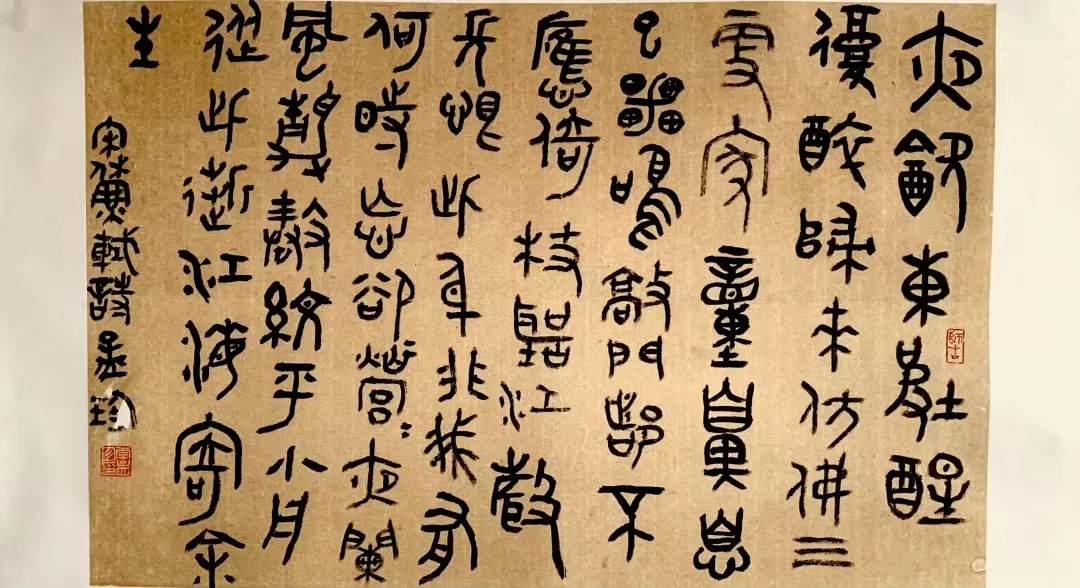 夜飲東坡醒
復醉歸來仿佛三
更家童鼻息
已雷鳴敲門都不
應倚杖聽江聲
長恨此身非我有
何時忘卻營〻夜闌
風靜縠紋平小舟
從此逝江海寄余
生
宋蘇軾詩
師古